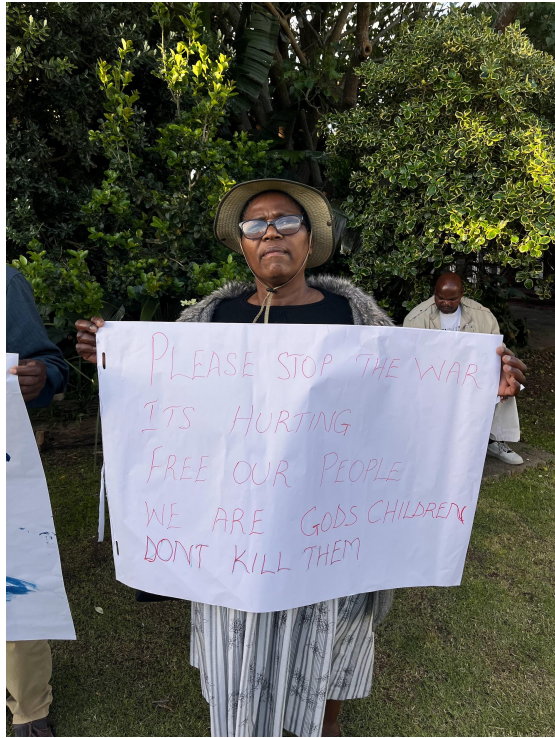 PLEASE STOP THE WAR
ITS HURTING
FREE OUR PEOPLE
WE ARE GODS CHILDREN
DONT KILL THEM